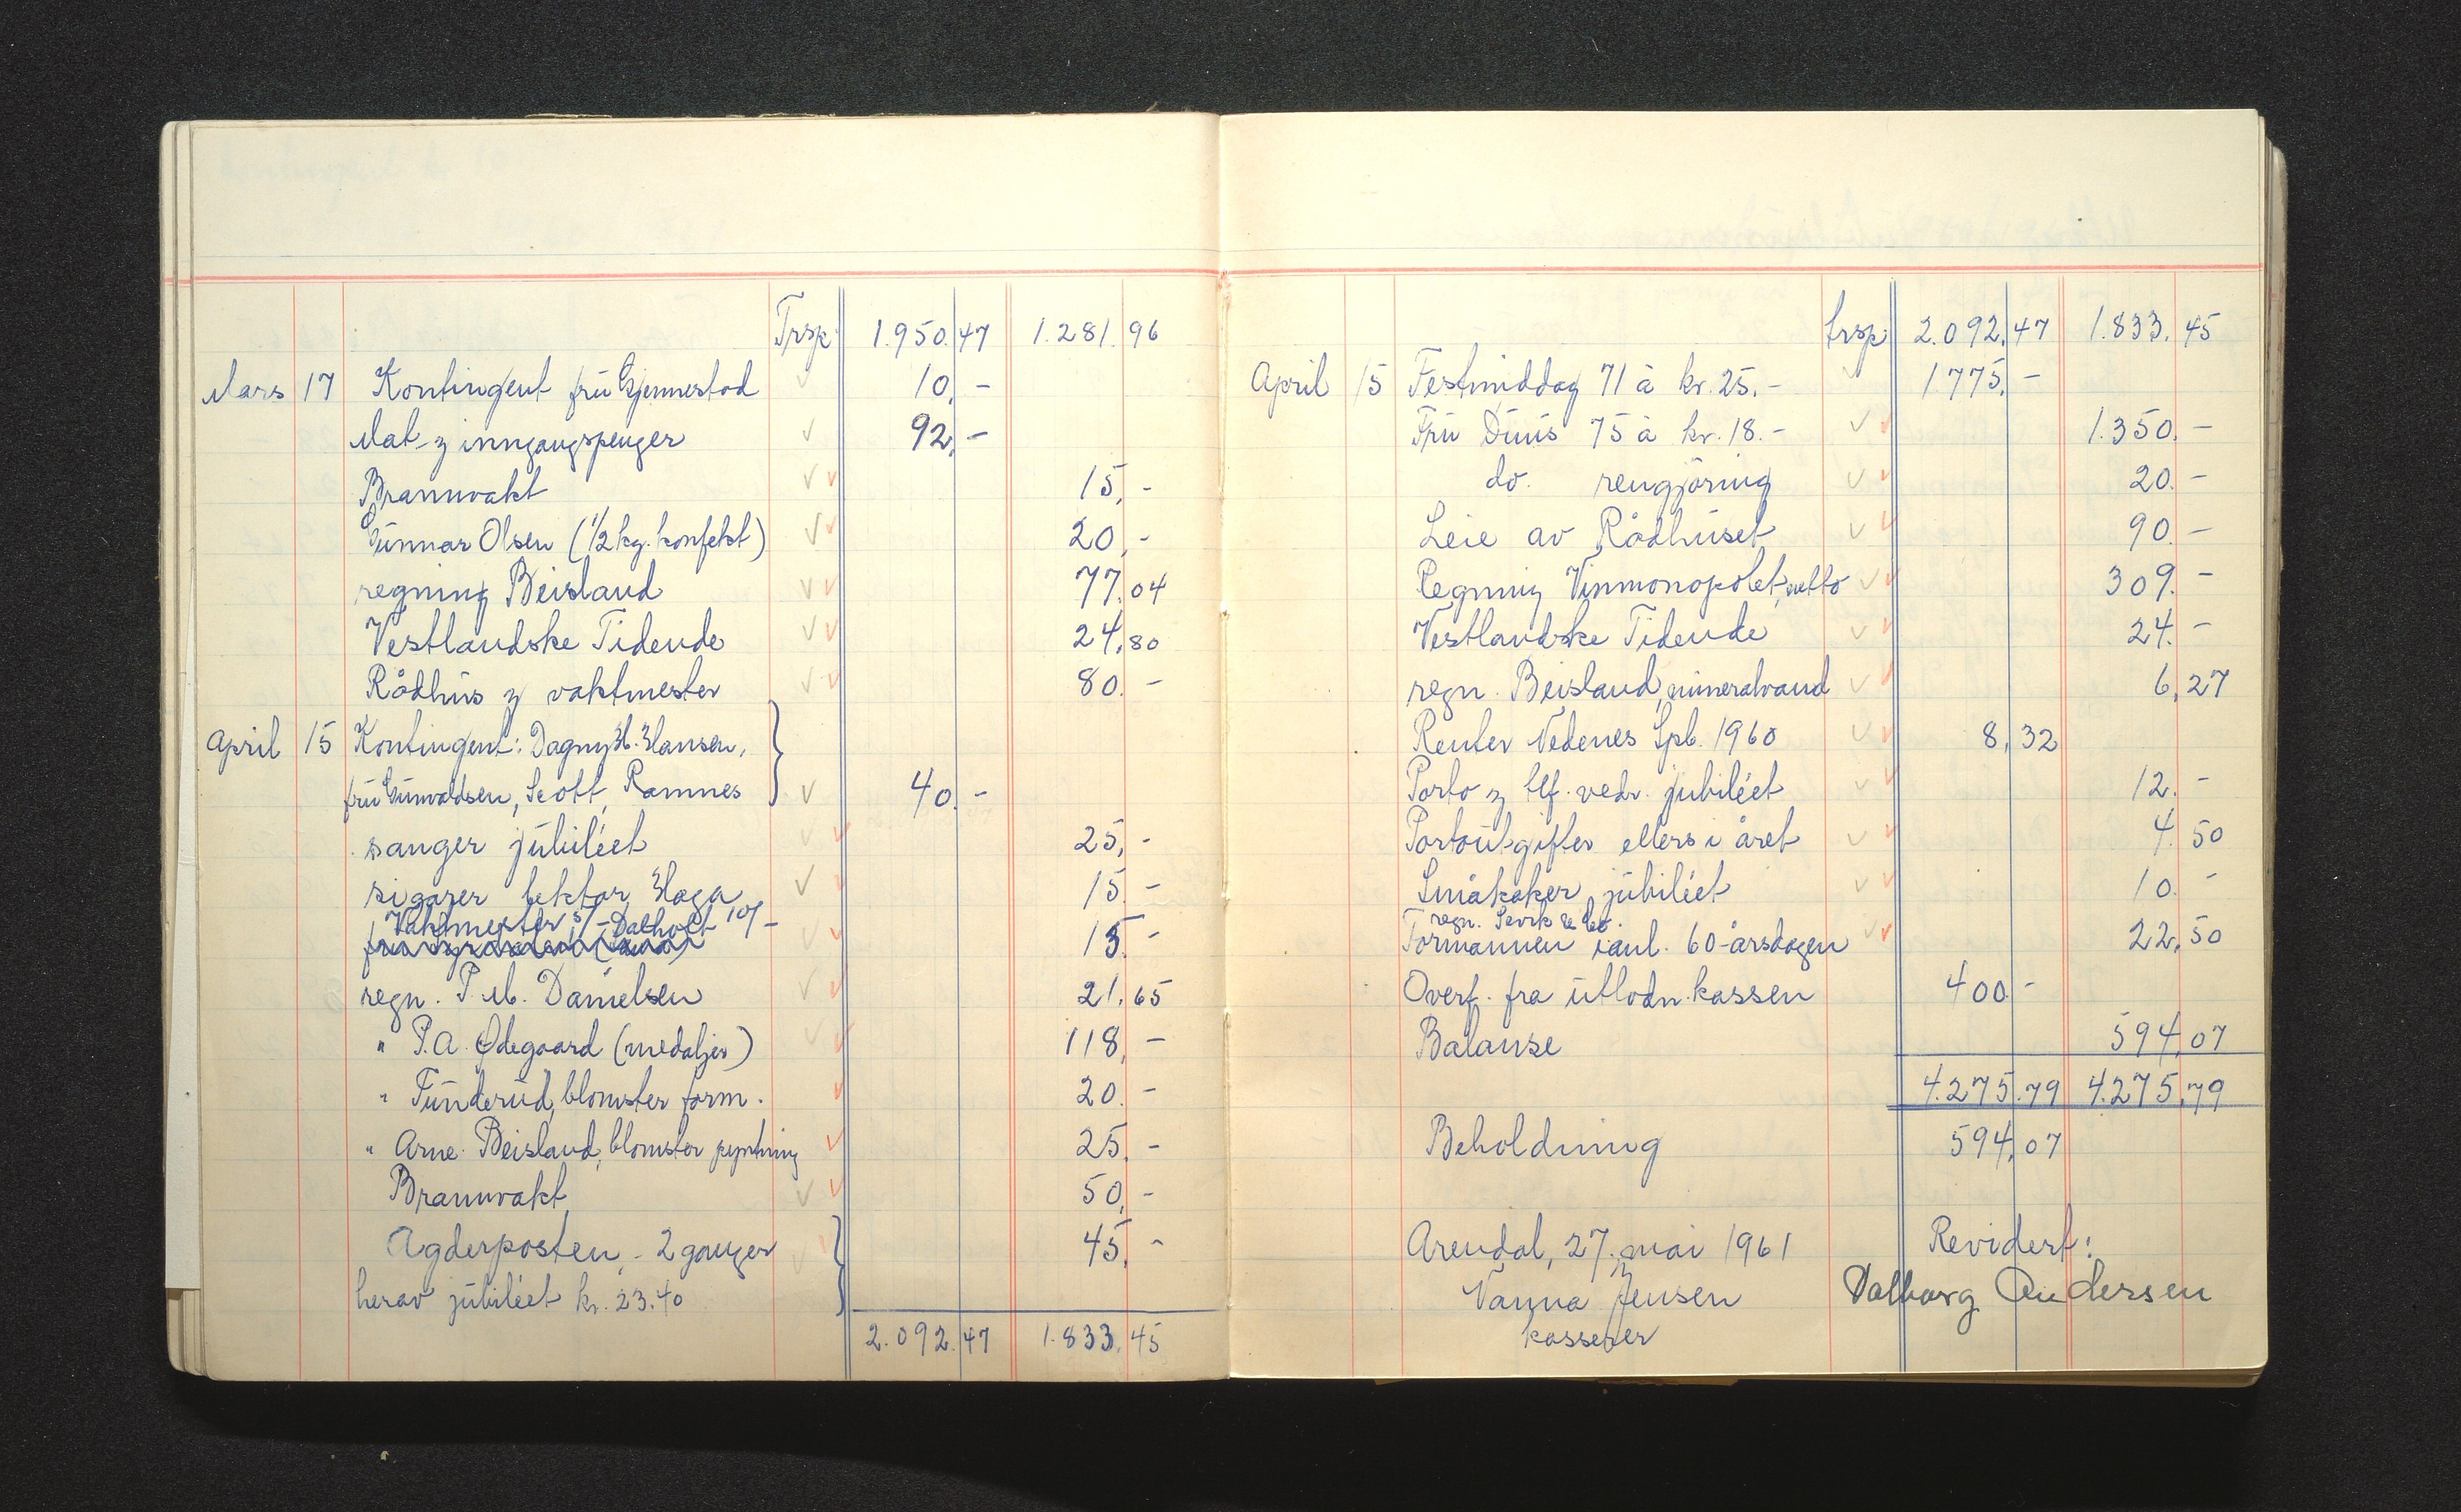 Trsp. 1.950.47 1.281.96
Mars 17 Kontingent frú Gjennestad 10,-
Mat- og inngangspenger 92,-
Brannvakt 15,-
Gunnar Olsen (1/2 kg. konfekt) 20,-
regning Beisland 77.04
Vestlandske Tidende 24,80
Rådhus og vaktmester 80.-
April 15 Kontingent: Dagny H. Hansen,
fru Gunvaldsen, Scott, Ramnes 40.-
sanger jubiléet 25,-
sigarer lektor Haga 15.-
Vaktmester 5/- Dalholt 10/- 15.-
regn. P. M. Danielsen 21,65
" P.A. Ødegaard (medaljer) 118,-
" Tunderud, blomster form. 20.-
" Arne Beisland, blomster pyntning 25,-
Brannvakt 50,-
Agderposten - 2 ganger 45,-
herav jubiléet kr. 23.40
2.092.47 1.833.45
trsp. 2.092.47 1.833.45
April 15 Festmiddag 71 à kr. 25.- 1775.-
Fru Duus 75 à kr. 18.- 1.350.-
do. rengjøring 20.-
Leie av Rådhuset 90.-
Regning Vinmonopolet, netto 309.-
Vestlandske Tidende 24.-
regn. Beisland, mineralvand 6,27
Renter Nedenes Spb. 1960 8,32
Porto og tlf. vedr. jubiléet 12.-
Portoutgifter ellers i året 4.50
Småkaker jubiléet 10.-
regn. & Co.
Formannen i anl. 60-årsdagen 22,50
Overf. fra utlodn.kassen 400.-
Balanse 594,07
4.275.79 4.275,79
Beholdning 594,07
Arendal, 27. mai 1961 Revidert:
Vanna Jensen Valborg Andersen
kasserer